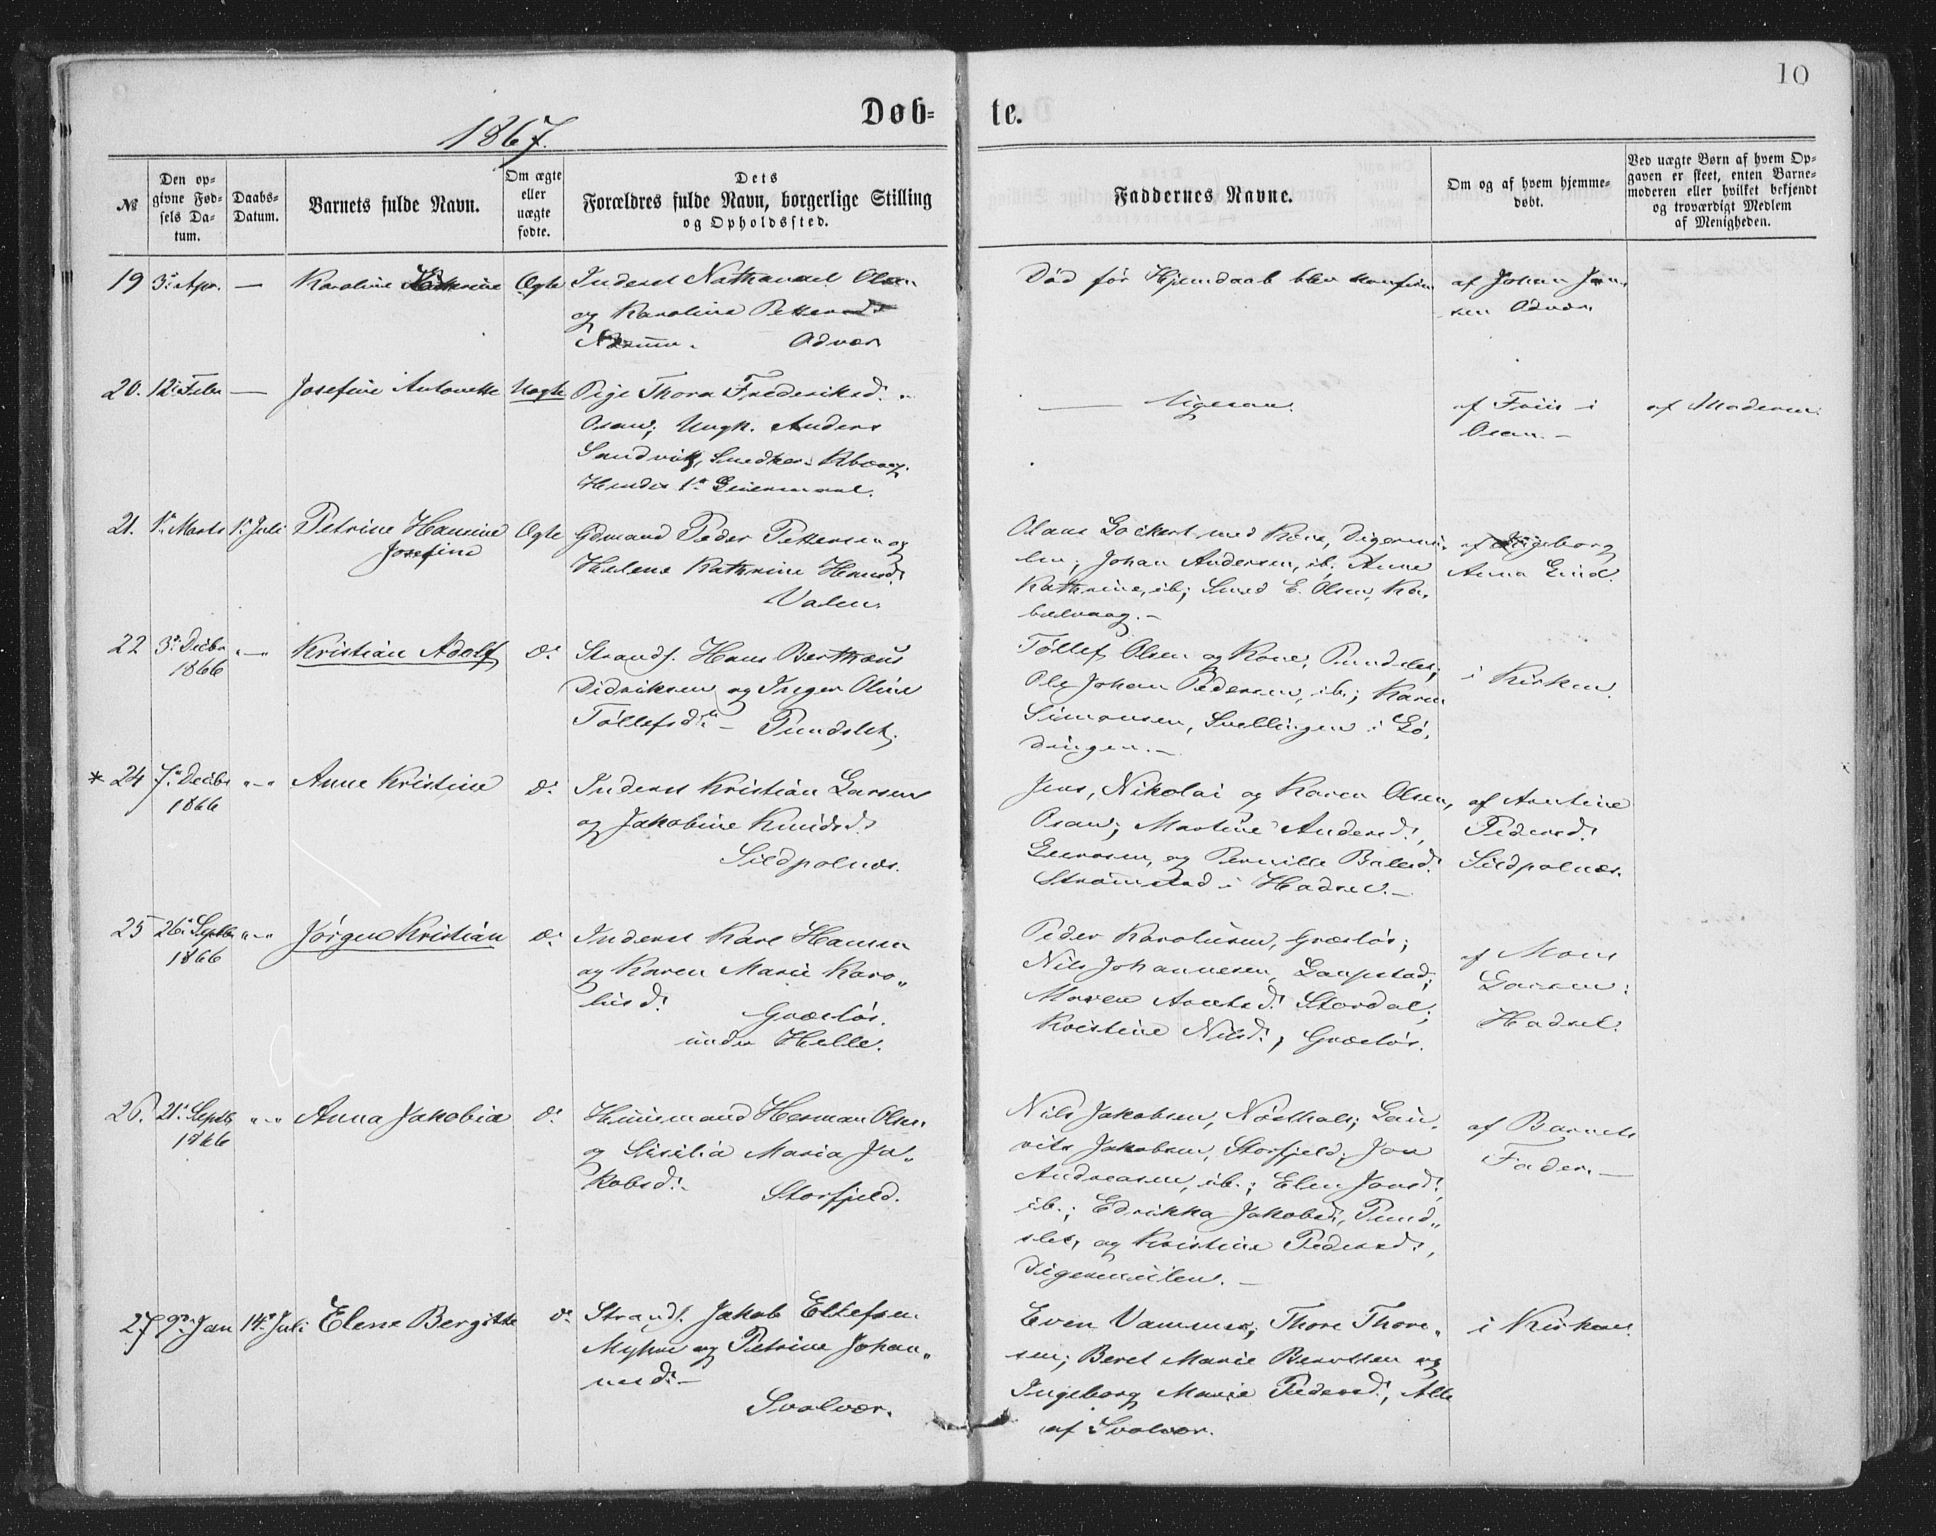 10
Døb= te.
1867.
№
Den op-
givne Fød-
sels Da-
tum.
Daabs-
Datum.
Barnets fulde Navn.
Om ægte
eller
uægte
fødte.
Dets
Forældres fulde Navn, borgerlige Stilling
og Opholdssted.
Faddernes Navne.
Om og af hvem hjemme-
døbt.
Ved uægte Børn af hvem Op-
gaven er skeet, enten Barne-
moderen eller hvilket bekjendt
og troværdigt Medlem
af Menigheden.
19 3. Apr. — Karoline Ægte Inderst Nathanael Olsen
og Karoline Petters
Odvær
Død før Hjemdaab blev
af Johan Jen-
sen Odvær.
20. 12. Febr — Josefine Antonette Uægte Pige Thora Frederiksd.
Osan; Ungk. Anders
Sandvik, Snedker i
Hendes 1ste Leiermaal.
— ligesaa.
af Friis i
Osan. —
af Moderen.
21. 1. Marts 1. Juli Petrine Hansine
Josefine
Ægte Gdmand Peder Pettersen og
Helene Kathrine Hansd.
Valen.
Olaus Lockert med Kone, Digermu-
len; Johan Andersen, ib; Anne
Kathrine, ib; Smed E. Olsen, Ka-
belvaag. —
af Ingeborg
Anna Lind.
22 3. Decbr
1866
"—" Kristian Adolf do Strands. Hans Berthæus
Didriksen og Inger Oline
Tøllefsd. — Pundslet.
Tøllef Olsen og Kone, Pundslet;
Ole Johan Pedersen, ib.; Karen
Simonsen, Snellingen i Lø-
dingen. —
i Kirken.
* 24 7. Decbr
1866
"—" Anne Kristine do Inderst Kristian Larsen
og Jakobine Knudsd.
Sildpolnæs.
Jens, Nikolai og Karen Olsen,
Osan; Martine Andersd.,
og Pernille
Strømstad i Hadsel. —
af Arntine
Pedersd.
Sildpolnæs.
25 26. Septbr
1866
"—" Jørgen Kristian do Inderst Karl Hansen
og Karen Marie Karo-
liusd.
under Helle.
Peder Karoliusen,
Nils Johannesen, Laupstad;
Maren Arntsd. Stordal;
Kristine Nilsd.,
af Mons
Larsen
Hadsel.
26. 21. Septb
1866
"—" Anna Jakobia do Huusmand Herman Olsen
og Sisilia Maria Ja-
kobsd. —
Storfjeld.
Nils Jakobsen, Lau-
rits Jakobsen, Storfjeld; Jon
Andreasen, ib.; Elen Jonsd.,
ib.; Edrikka Jakobsd., Pund-
slet, og Kristine Pedersd.,
Digermulen. —
af Barnets
Fader. —
27 9. Jan 14. Juli Elene Bergitte do Strands. Jakob Ellefsen
Myhre og Petrine Johan-
nesd. —
Svolvær.
Even Vammen; Thore Thore-
sen; Beret Marie Berntsen og
Ingeborg Marie Pedersd., Alle
af Svolvær.
i Kirken.